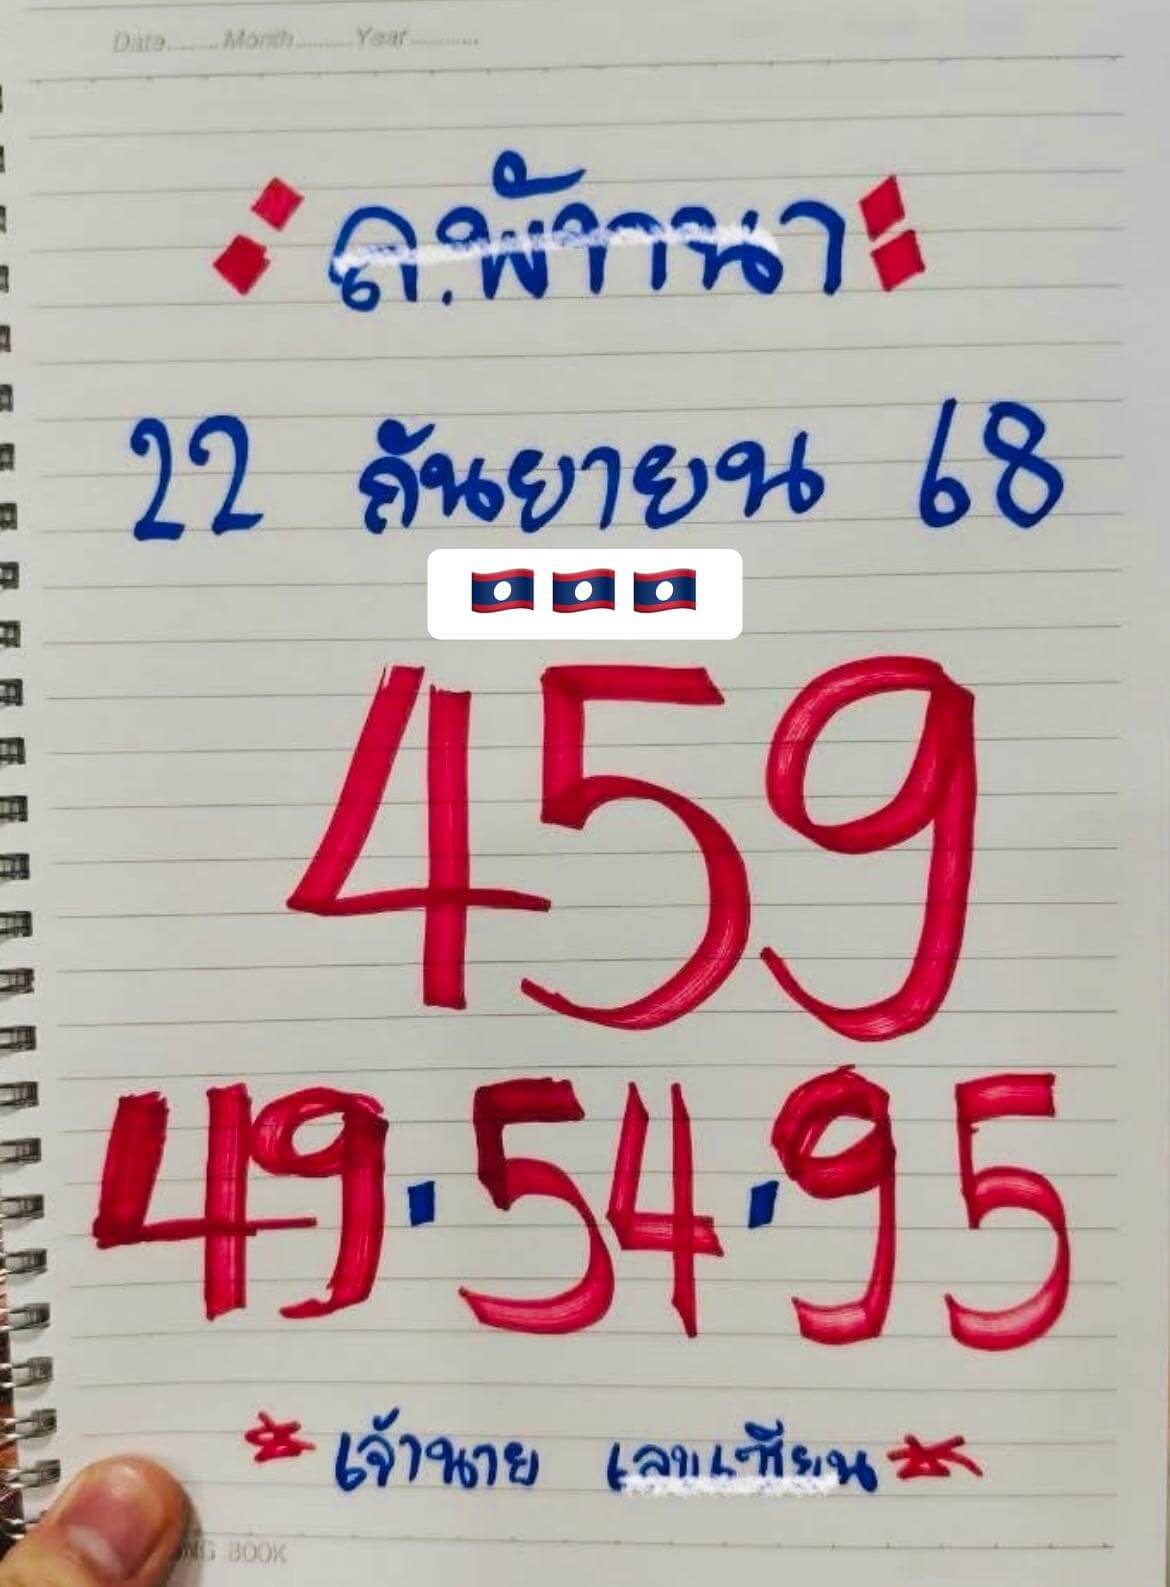 Date........Month.........Year...........
ล.พัฒนา
22 กันยายน 68
459
49.54.95
เจ้านาย เลขเซียน
BOOK